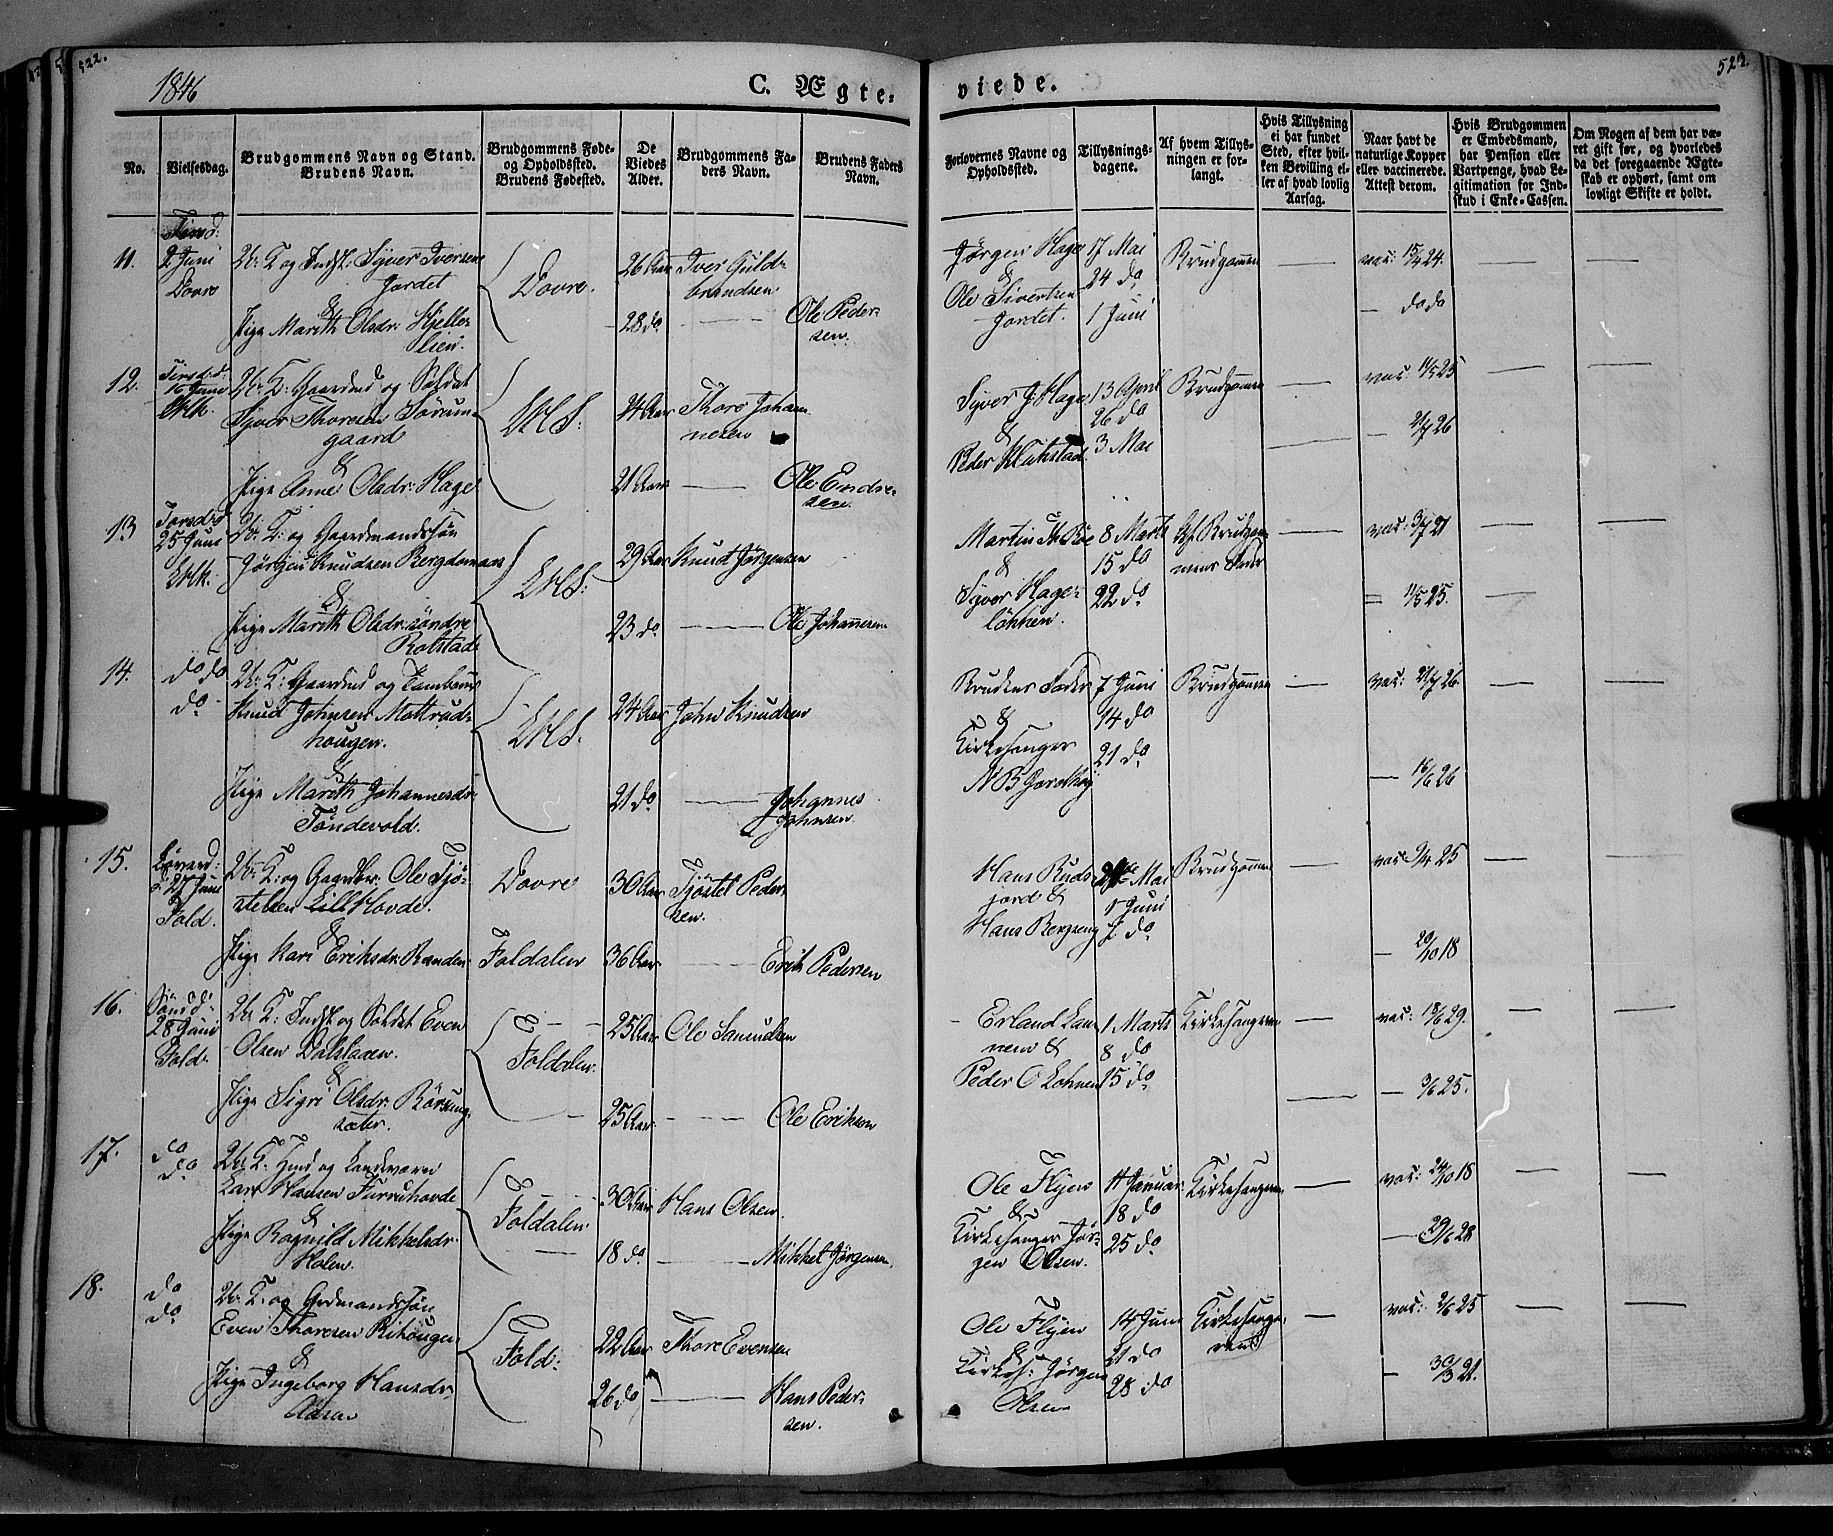 522.
1846
C. Ægte-
viede.
522.
No.
Vielsesdag.
Brudgommens Navn og Stand.
Brudens Navn.
Brudgommens Føde-
og Opholdsted.
Brudens Fødested.
De
Viedes
Alder.
Brudgommens Fa-
ders Navn.
Brudens Faders
Navn.
Forlovernes Navne og
Opholdsted.
Tillysnings-
dagene.
Af hvem Tillys-
ningen er for-
langt.
Hvis Tillysning
ei har fundet
Sted, efter hvil-
ken Bevilling el-
ler af hvad lovlig
Aarsag.
Naar havt de
naturlige Kopper
eller vaccinerede.
Attest derom.
Hvis Brudgommen
er Embedsmand,
har Pension eller
Vartpenge, hvad Le-
gitimation for Ind-
skud i Enke-Cassen.
Om Nogen af dem har væ-
ret gift før, og hvorledes
da det foregaaende Ægte-
skab er ophørt, samt om
lovligt Skifte er holdt.
11.
2 Juni
Dovre
Ub: K og Indst: Syver Iversen
Jordet
&
Pige Marith Olsdr: Hjelle-
lien.
Dovre.
26 Aar
28 do
Iver Guld-
brandsen
Ole Peder-
sen.
Jørgen Hage
&
Ole Sivertsen
Jordet.
17 Mai
24 do
1 Juni
Brudgommen
vac: 15/7 24.
— do do
12.
Tirsd:
16 Juni
Ub: K: Gaardmd og Soldat
Syver Thoresen Sørum-
gaard
&
Pige Anne Olsdr: Hage
24 Aar
21 Aar
Thore Johan-
nesen
Ole Endre-
sen.
Syver J. Hage
&
Peder Klukstad
13 April
26 do
3 Mai
Brudgommen
vac: 11/5 25
— 21/7 26
13
Torsd:
25 Juni
Ub: K: og Gaardmandssøn
Jørgen Knudsen Bergdomaas
&
Pige Marith Olsdr: søndre
Rolstad
29 Aar
23 do
Knud Jørgensen
Ole Johannesen
Martin
&
Syver Hage-
løkken.
8 Marts
15 do
22 do
Af Brudgom-
mens Fader
vac: 3/7 21
= 11/5 25.
14.
do do
do
Ub: K: Gaardmd og Tambour
Knud Johnsen Mattrud-
hougen.
&
Pige Marith Johannesdr:
Tøndevold.
24 Aar
21 do
John Knudsen
Johannes
Johnsen
Brudens Fader
&
Kirkesanger
7 Juni
14 do
21 do
Brudgommen
vac: 21/7 26.
— 16/6 26
15.
Løverd:
27 Juni
Fold.
Ub: K: og Gaardbr: Ole Tjø-
stelsen Lill Hovde.
&
Pige Kari Eriksdr: Randen
Dovre
Foldalen
30 Aar
36 Aar
Tjøstel Peder-
sen.
Erik Pedersen
Hans Ruds-
jord &
Hans Bergseng
Mai
1 Juni
7 do
Brudgommen
vac: 9/4 25
— 20/10 18
16.
Sønd:
28 Juni
Fold:
Ub: K: Indst og Soldat Even
Olsen Dalslaaen.
&
Pige Sigri Olsdr: Børseng-
sæter.
Foldalen
25 Aar
25 Aar
Ole Samuelsen
Ole Eriksen
Erland Lan-
nem &
Peder O Lohnen
1 Marts
8 do
15 do
Kirkesangeren
vac: 18/6 29.
— 9/6 25.
17.
do
do
Ub: K: Hmd og Landværn
Lars Hansen Furruhovde
&
Pige Ragnild Mikkelsdr:
Holen.
Foldalen
30 Aar
18 do
Hans Olsen.
Mikkel Jørgensen.
Ole Flyen
&
Kirkesanger Jør-
gen Olsen.
11 Januar
18 do
25 do
Kirkesangeren
vac: 24/10 18
— 29/6 28
18.
do
do
Ub: K: og Grdmandssøn
Even Thoresen Rihougen
&
Pige Ingeborg Hansdr:
Aasen
Fold:
22 Aar
26 do
Thore Evensen
Hans Peder-
sen.
Ole Flyen
&
Kirkes: Jørgen
Olsen
14 Juni
21 do
28 do
Kirkesange-
ren
vac: 9/6 25
— 30/3 21.